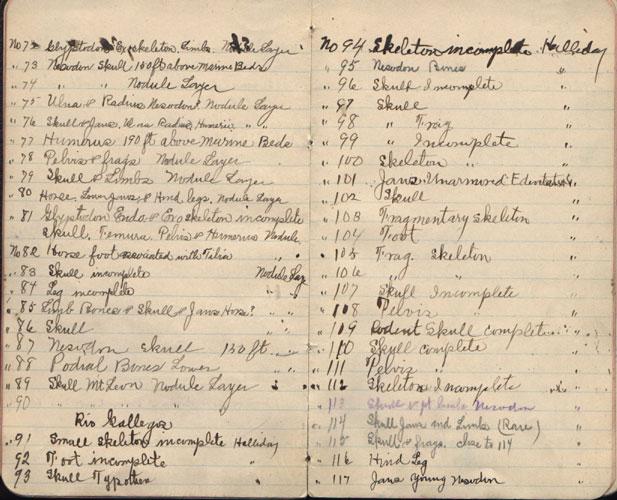 No 72 Glyptodon Exoskeleton. Limbs. Nodule Layer
" 73 Nesodon Skull 150 ft above Marine Beds
" 74 " " Nodule Layer
" 75 Ulna & Radius Nesodon? Nodule Layer
" 76 Skull & Jaws, Ulna Radius, Humerus " "
" 77 Humerus 190 ft above Marine Beds
" 78 Pelvis & frags Nodule Layer
" 79 Skull & Limbs Nodule Layer
" 80 Horse, Lower Jaws & Hind legs, Nodule Layer
" 81 Glyptodon Endo & Exoskeleton incomplete
Skull, Femura, Pelvis & Humerus Nodule
No 82 Horse foot associated with Tibia " "
" 83 Skull incomplete Nodule Lay
" 84 Leg incomplete " "
" 85 Limb Bones & Skull & Jaws Horse? " "
" 86 Skull " "
" 87 Nesodon Skull 150 ft " "
" 88 Podial Bones Lower " "
" 89 Skull Mt Leon Nodule Layer " "
" 90 " "
Rio Gallegos
" 91 Small Skeleton incomplete Halliday
92 Foot incomplete "
93 Skull Typotheria "
No 94 Skeleton incomplete Halliday
" 95 Nesodon Bones "
" 96 Skull Incomplete "
" 97 Skull "
" 98 " Frag "
" 99 " Incomplete "
" 100 Skeleton " "
" 101 Jaws Unarmored Edentate "
" 102 Skull "
" 103 Fragmentary Skeleton "
" 104 Foot "
" 105 Frag. Skeleton "
" 106 " " "
" 107 Skull Incomplete "
" 108 Pelvis "
" 109 Rodent Skull complete "
" 110 Skull complete "
" 111 Pelvis "
" 112 Skeleton Incomplete "
" 113 Skull & pt limbs Nesodon "
" 114 Skull Jaws and Limbs (Rare) "
" 115 Skull & frags. close to 114 "
" 116 Hind Leg "
" 117 Jaws Young Nesodon "